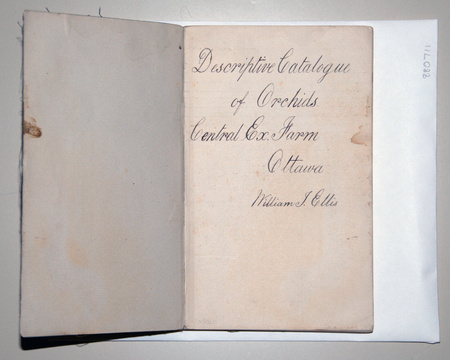 Descriptive Catalogue
of Orchids
Central Ex. Farm
Ottawa
William J. Ellis